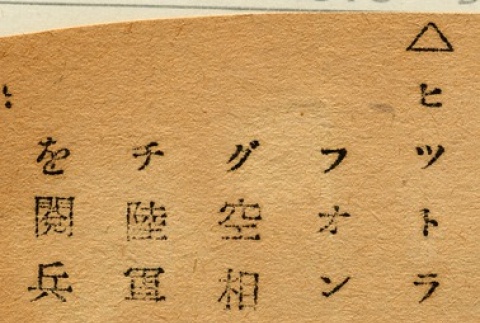 △ヒツトラ
フオン
グ空相
チ陸軍
を閲兵